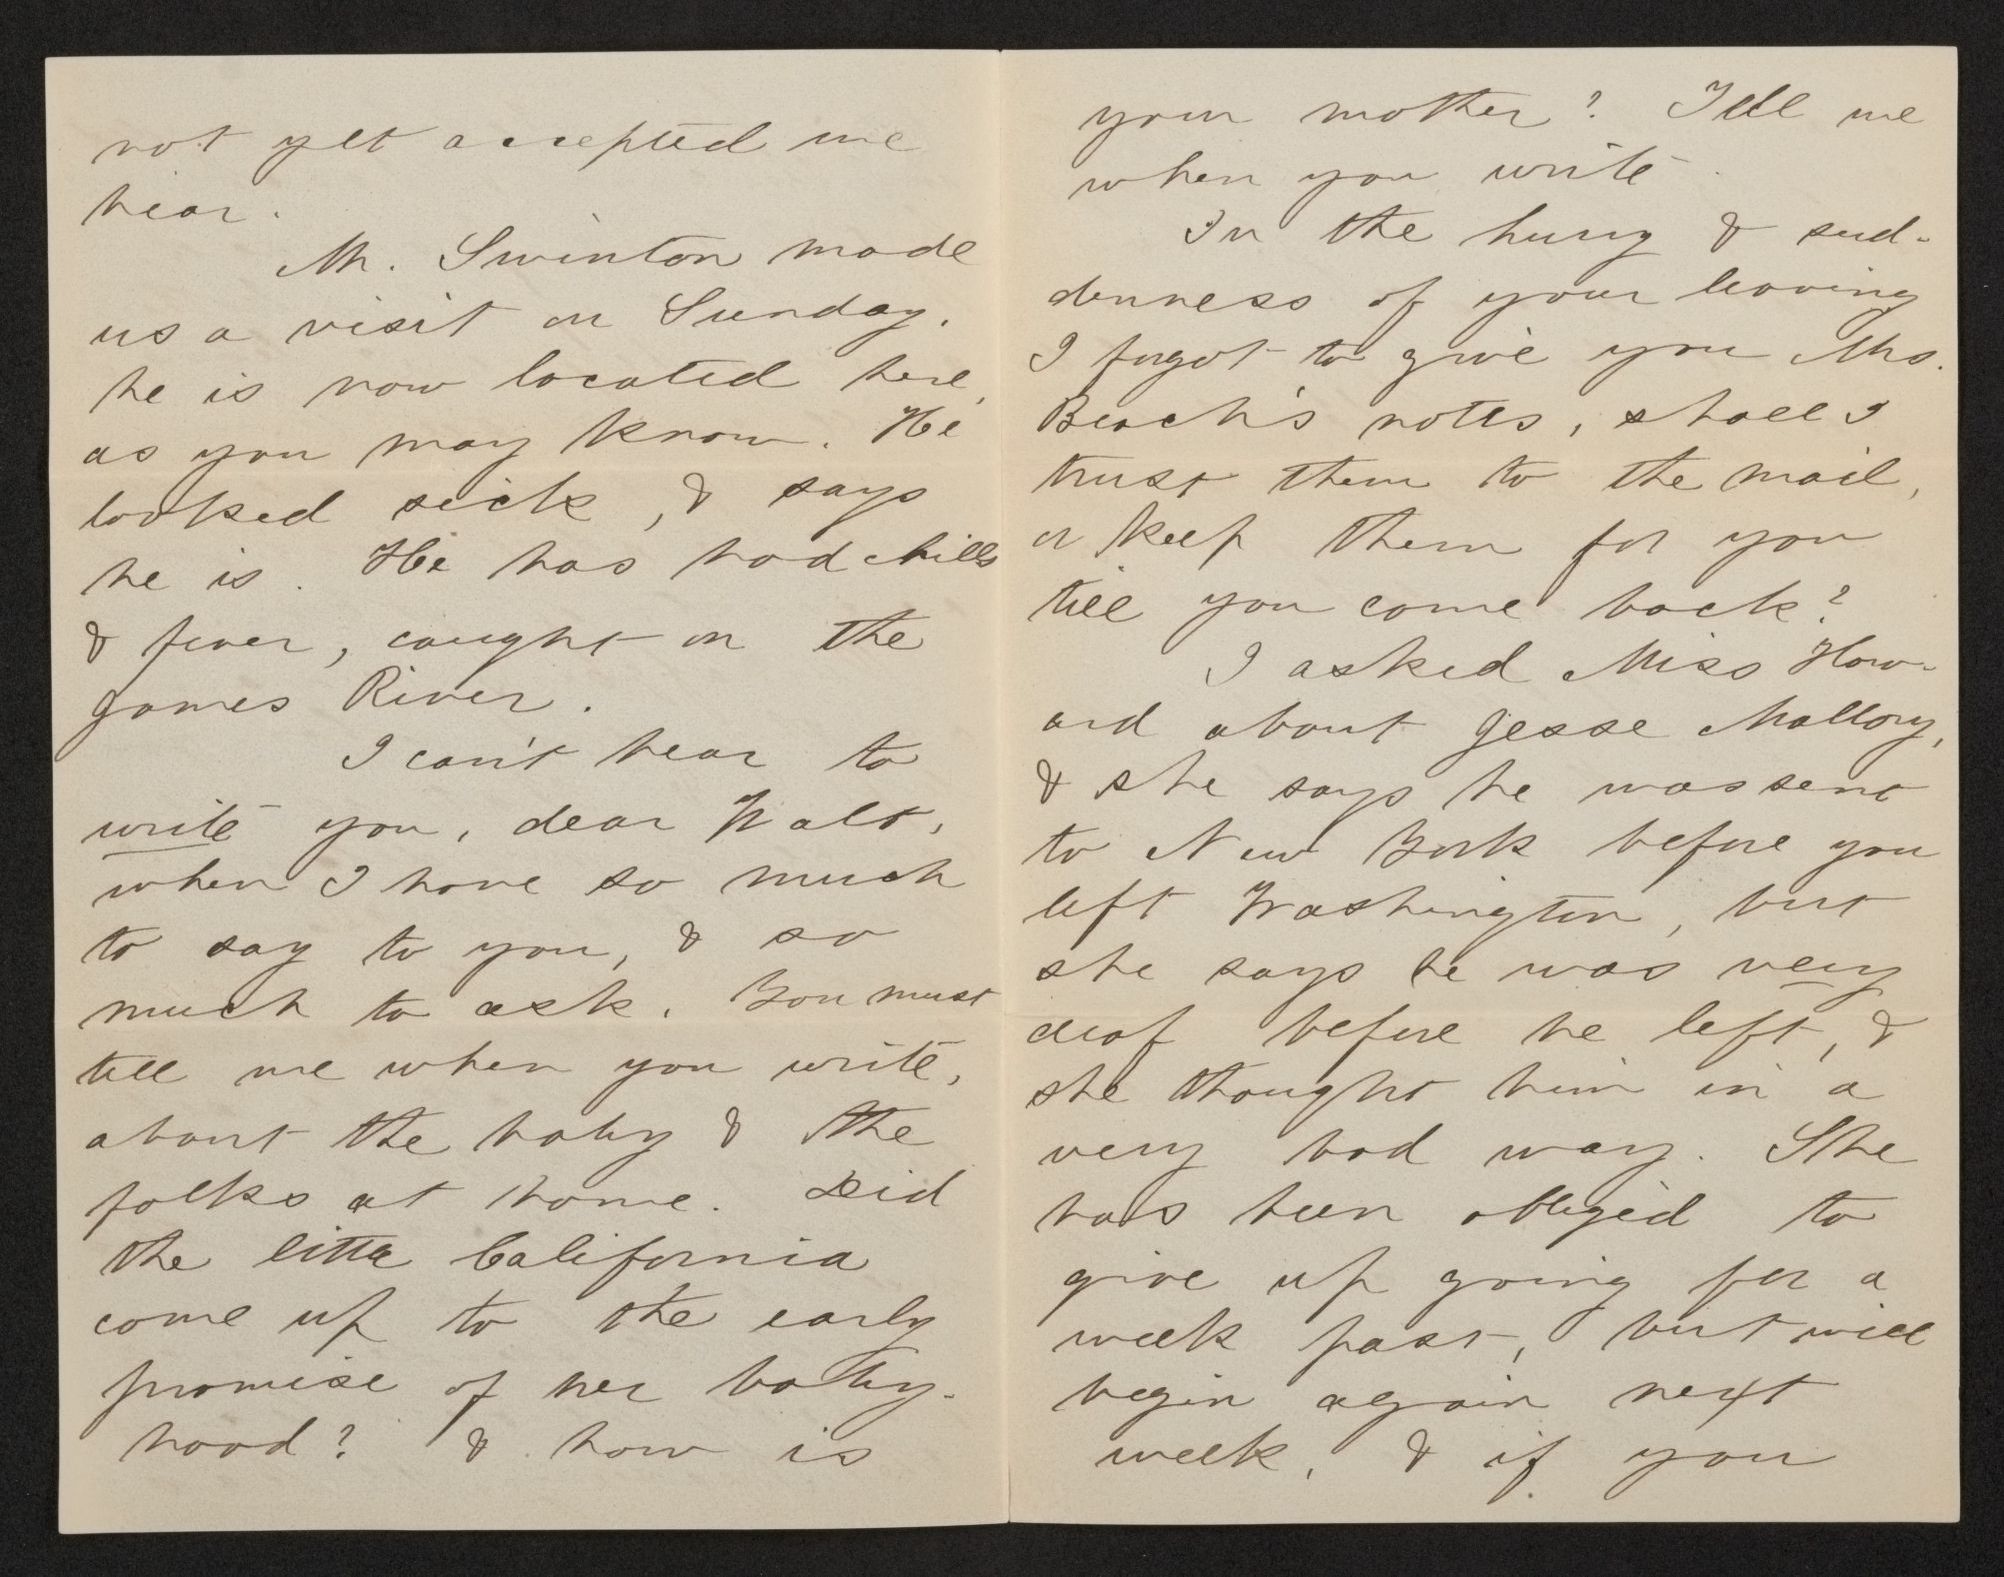 not yet accepted me
hear.
Mr. Swinton made
us a visit on Sunday.
he is now located here,
as you may know. He
looked sick, & says
he is. He has had chills
& fever, caught on the
James River.
I can't bear to
write you, dear Walt,
when I have so much
to say to you, & so
much to ask. You must
tell me when you write,
about the baby & the
folks at home. Did
the little California
come up to the early
promise of her baby-
hood? & how is
your mother? Tell me
when you write.
In the hurry & sud-
denness of your leaving
I forgot to give you Mrs.
Beach's notes, shall I
trust them to the mail,
or keep them for you
till you come back?
I asked Miss How-
ard about Jesse Mallory,
& she says he was sent
to New York before you
left Washington, but
she says he was very
deaf before he left, &
she thought him in a
very bad way. She
has been obliged to
give up going for a
week past, but will
begin again next
week, & if you